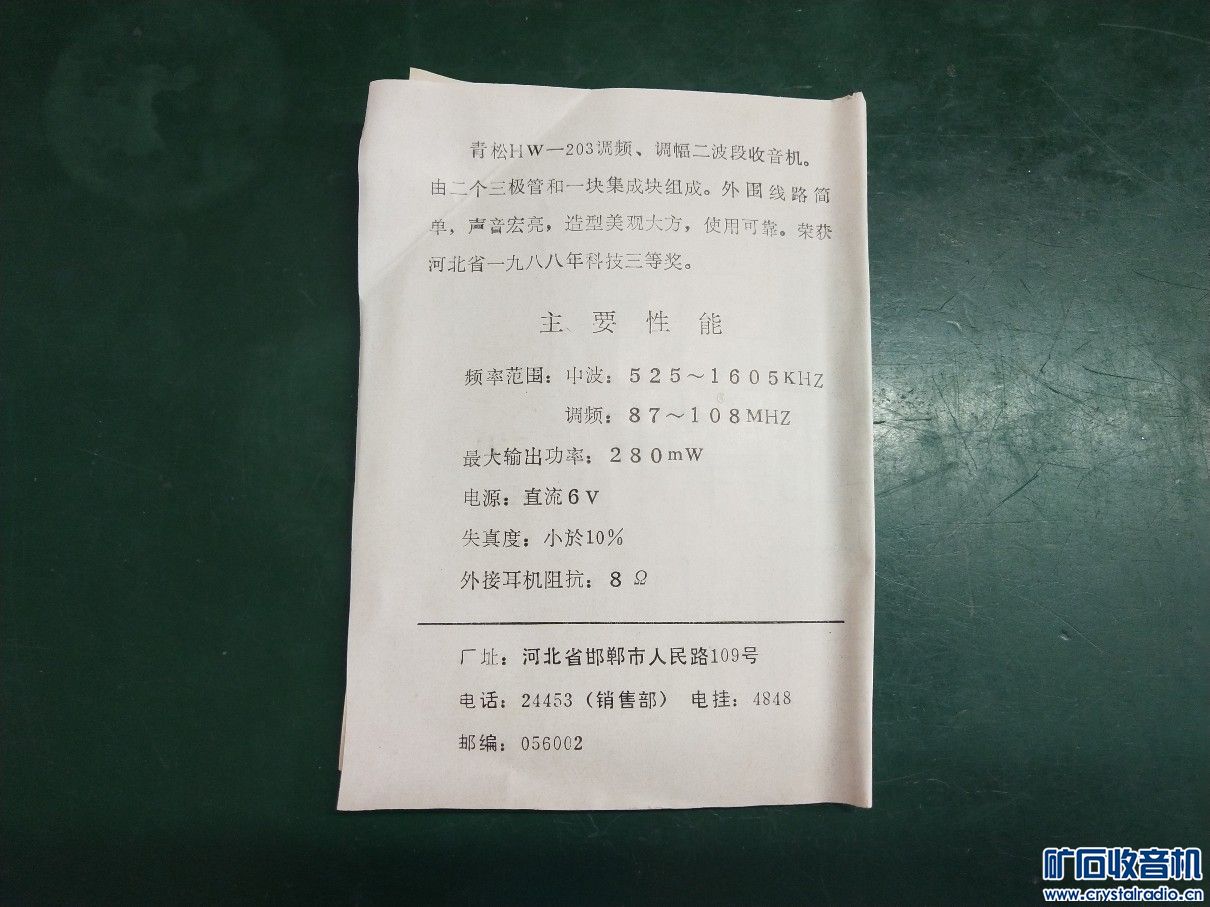 青松HW—203调频、调幅二波段收音机。
由二个三极管和一块集成块组成。外围线路简
单，声音宏亮，造型美观大方，使用可靠。荣获
河北省一九八八年科技三等奖。
主要性能
频率范围：中波：525～1605KHZ
调频：87～108MHZ
最大输出功率：280mW
电源：直流6V
失真度：小於10%
外接耳机阻抗：8Ω
厂址：河北省邯郸市人民路109号
电话：24453（销售部） 电挂：4848
邮编：056002
矿石收音机
www.crystalradio.cn